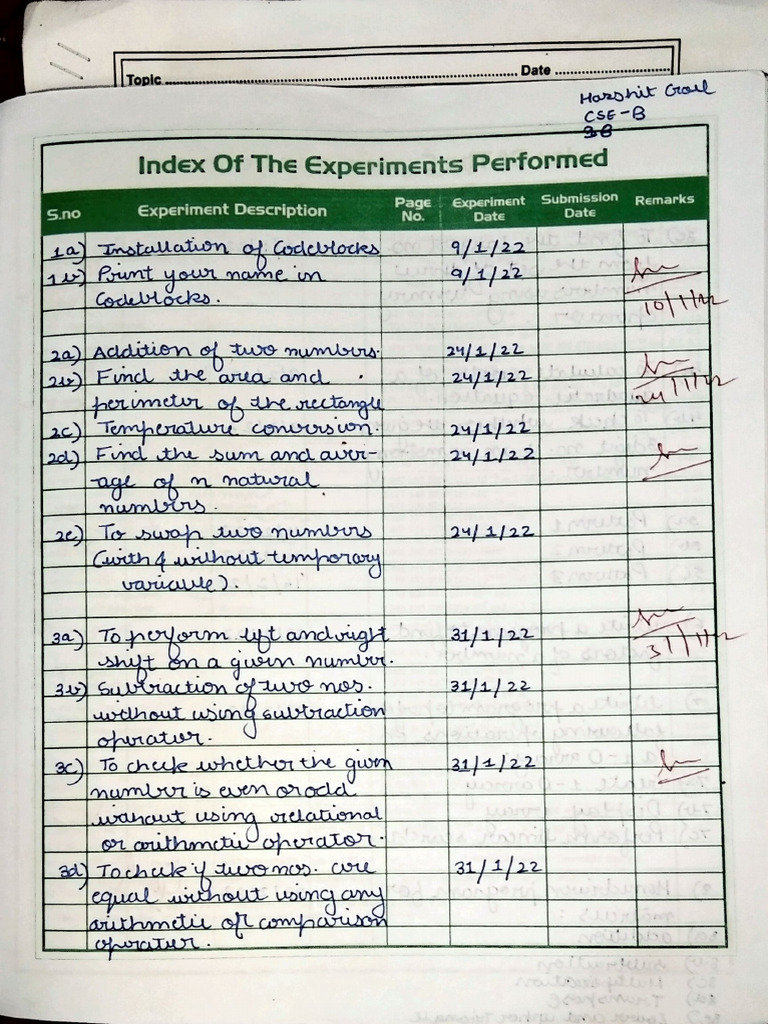 Topic ........ Date ........
Harshit Goel
CSE-B
Index Of The Experiments Performed
S.no Experiment Description Page No. Experiment Date Submission Date Remarks
1a) Installation of Codeblocks 9/1/22
1b) Print your name in 9/1/22
Codeblocks.
10/1/22
2a) Addition of two numbers. 24/1/22
2b) Find the area and 24/1/22
perimeter of the rectangle 24/1/22
2c) Temperature conversion. 24/1/22
2d) Find the sum and aver- 24/1/22
age of n natural
numbers.
2e) To swap two numbers 24/1/22
(with & without temporary
variable).
3a) To perform left and right 31/1/22 31/1/22
shift on a given number.
3b) Subtraction of two nos. 31/1/22
without using subtraction
operator.
3c) To check whether the given 31/1/22
number is even or odd
without using relational
or arithmetic operator.
3d) To check if two nos. are 31/1/22
equal without using any
arithmetic or comparison
operator.